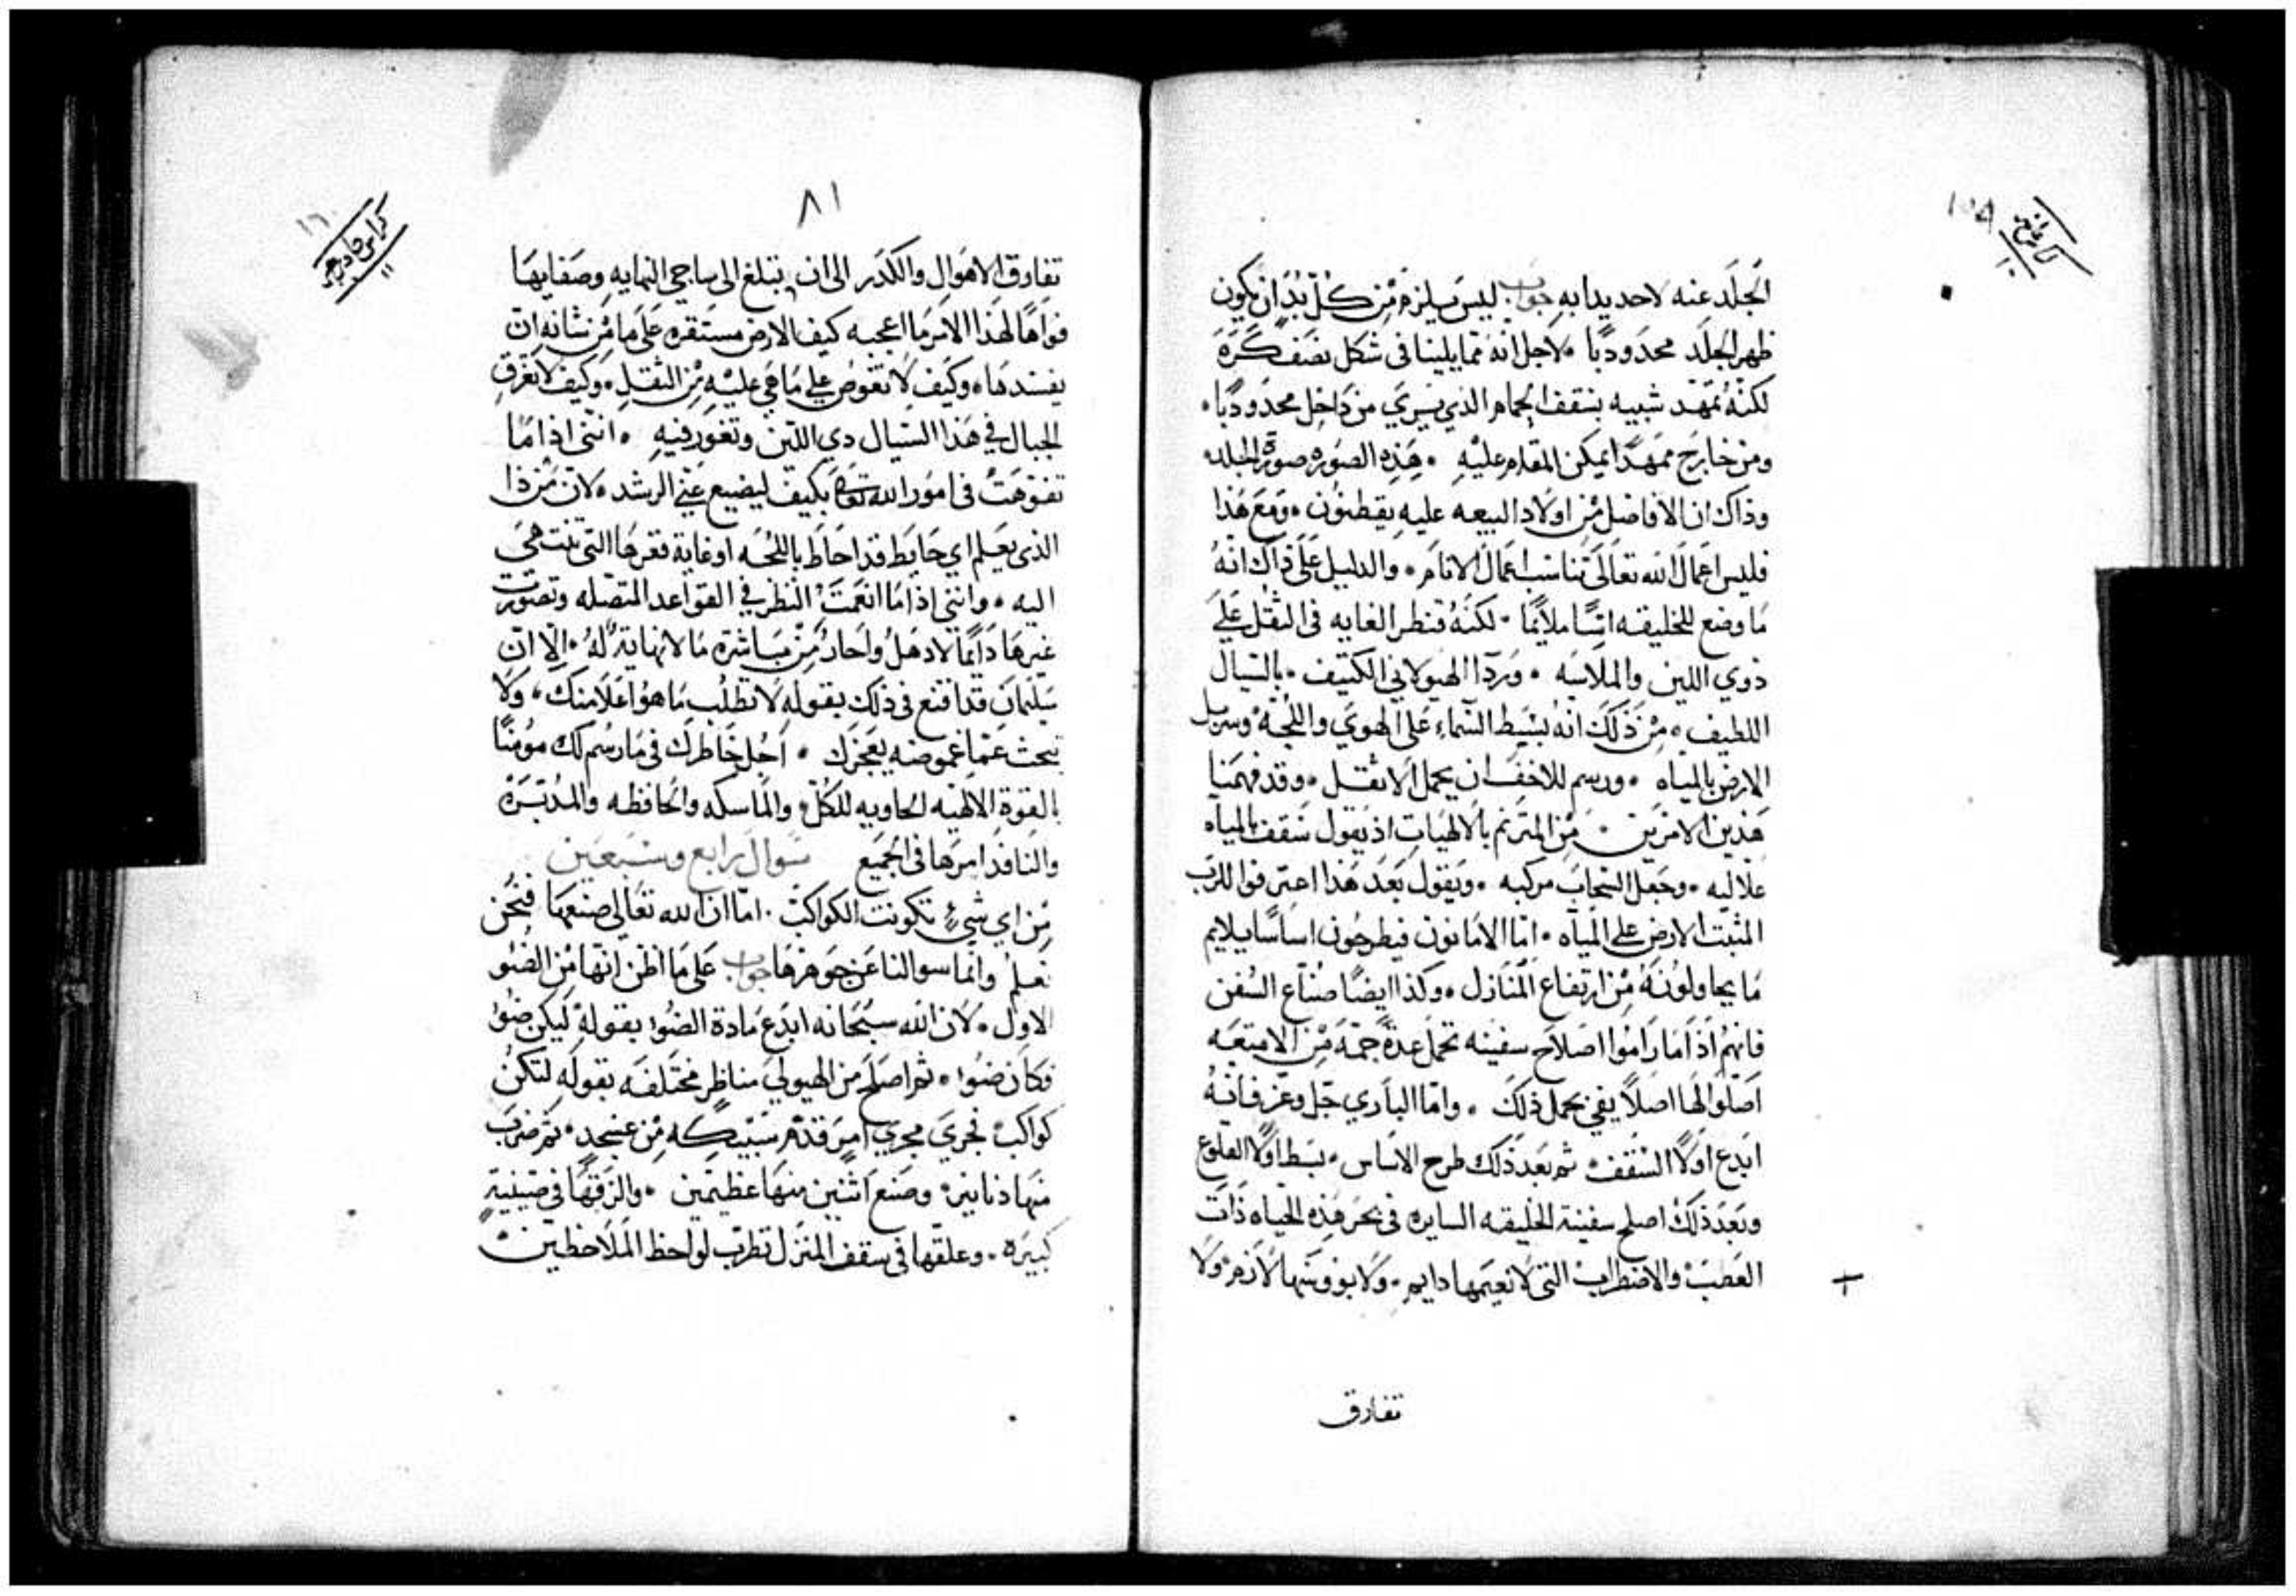 كراس عاشر
١٠
الجلد عنه لاحديدابه جواب ليس يلزم من كل بد ان يكون
ظهر الجلد محدودبًا • لاجل انه مما يلينا في شكل نصف كرة
لكنه ممهد شبيه بسقف الحمام الذي يري من داخل محدودبًا •
ومن خارج ممهدًا يمكن المقام عليه • هذه الصوره صورة الجلد •
وذاك ان الافاضل من اولاد البيعه عليه يقطنون • ومع هذا
فليس اعمال الله تعالى تناسب اعمال الانام • والدليل على ذاك انه
ما وضع للخليقه اسًا ملايمًا • لكنه قنطر الغايه في الثقل علي
ذوي اللين والملاسه • ورد الهيولاني الكثيف • بالسيال
اللطيف • من ذلك انه بسيط السماء على الهوي واللجة وسربل
الارض بالمياه • ورسم للاخف ان يحمل الاثقل • وقد فهمنا
هذين الامرين • من المترنم بالالهيات اذ يقول سقف بالمياه
علاليه • وجعل السحاب مركبه • ويقول بعد هذا اعترفوا للرب
المثبت الارض على المياه • اما الامانون فيطرحون اساسًا يلايم
ما يحاولونه من ارتفاع المنازل • وكذا ايضًا صناع السفن
فانهم اذا ما راموا اصلاح سفينه تحمل عدة جمة من الامتعه
اصلوا لها اصلاً يفي بحمل ذلك • واما الباري جل وعز فانه
ابدع اولاً السقف • ثم بعد ذلك طرح الاساس • بسط اولاً القلوع
وبعد ذلك اصلح سفينة الخليقه السايره في بحر هذه الحياه ذات
العطب والاضطراب التي لا نعيمها دايم • ولا بووسها لازم • ولا
تفارق
٨١
كراس حادي عشر
١١
تفارق الاهوال والكدر الى ان تبلغ الى ساجي النهايه وصفايها
فواهًا لهذا الامر ما اعجبه كيف الارض مستقره على ما من شانه ان
يفسدها • وكيف لا تغوص علي ما هي عليه من الثقل • وكيف لا تغرق
الجبال في هذا السيال ذي اللين وتغور فيه • انني اذا ما
تفوهت في امور الله تعالى بكيف ليضيع عني الرشد • لان من ذا
الذي يعلم اي حايط قد احاط باللجه او غاية قعرها التي تنتهي
اليه • وانني اذا ما انعمت النظر في القواعد المتصله وتصورت
غيرها دايمًا لا دهل واحار من مباشرة ما لا نهاية له • الا ان
سليمان قد اقنع في ذلك بقوله لا تطلب ما هو اعلا منك • ولا
تبحث عما غموضه يعجزك • اجل خاطرك في ما رسم لك مومنًا
بالقوة الالهيه الحاويه للكل • والماسكه والحافظه والمدبرة
والنافذ امرها في الجميع سوال رابع وسبعين
من اي شيء تكونت الكواكب • اما ان الله تعالى صنعها فنحن
نعلم وانما سوالنا عن جوهرها جواب على ما اظن انها من الضو
الاول • لان الله سبحانه ابدع مادة الضوء بقوله ليكن ضوا
فكان ضوا • ثم اصلح من الهيولي مناظر مختلفه بقوله لتكن
كواكب فجري مجري امر قدم سبيكه من عسجد • ثم ضرب
منها دنانير • وصنع اثنين منها عظيمين • والزقها في صينية
كبيره • وعلقها في سقف المنزل تطرب لواحظ الملاحظين •